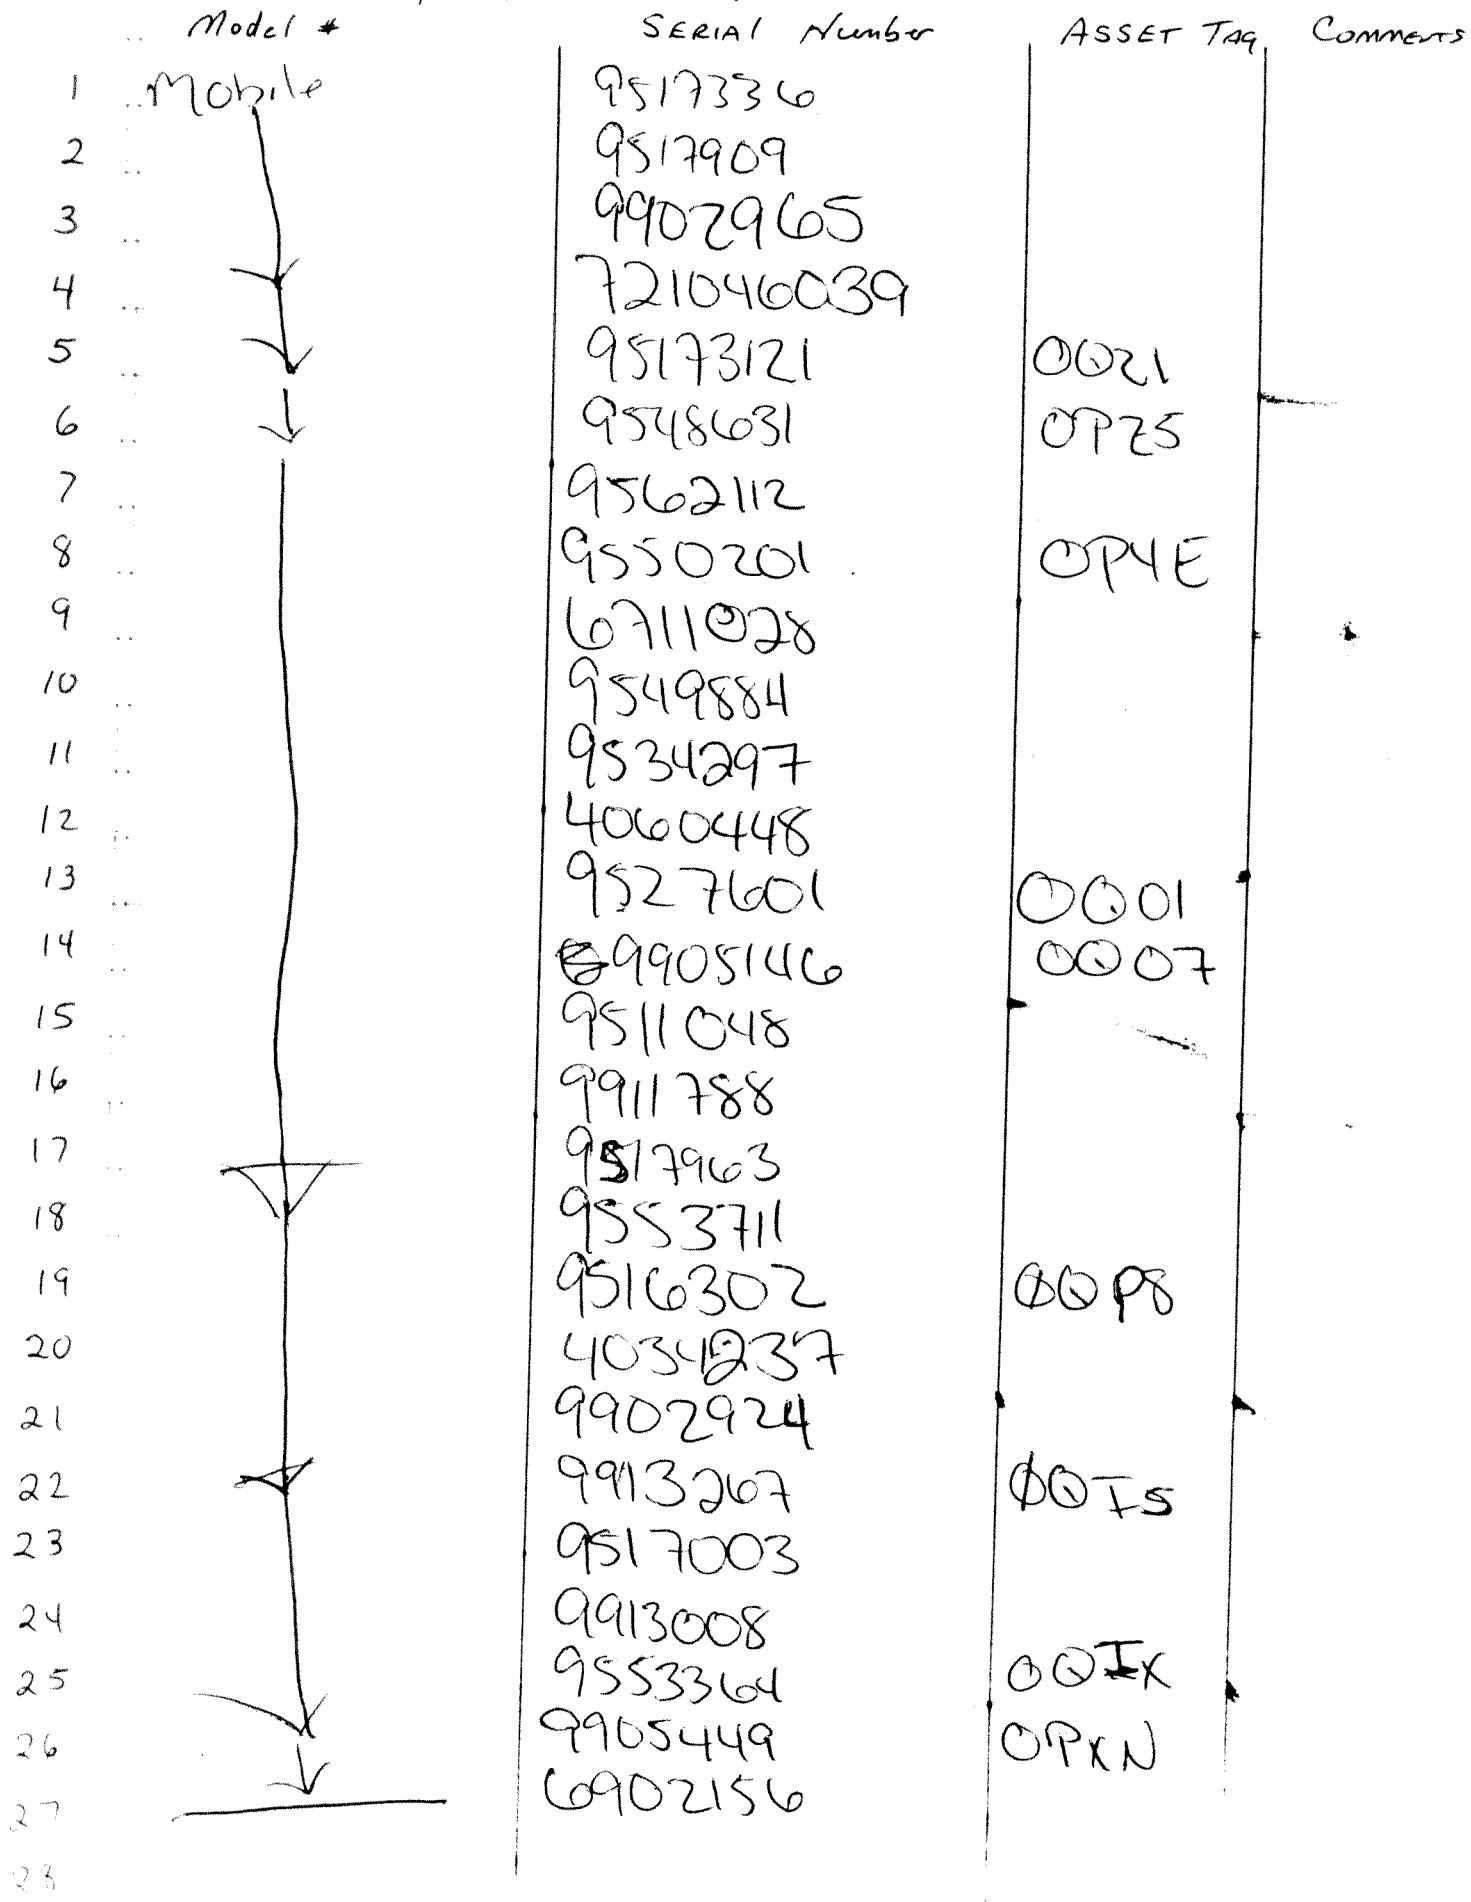 Model # SERIAL Number ASSET TAG COMMENTS
1 Mobile 9517336
2 9517909
3 9902965
4 721046039
5 95173121 0Q21
6 9548631 0PZ5
7 9562112
8 9550201 0P4E
9 6711028
10 9549884
11 9534297
12 4060448
13 9527601 0Q01
14 9905146 0Q07
15 9511048
16 9911788
17 9517963
18 9553711
19 9516302 0QP8
20 4034237
21 9902924
22 9913267 0QIS
23 9517003
24 9913008
25 9553364 0QIX
26 9905449 0PXN
27 6902156
28